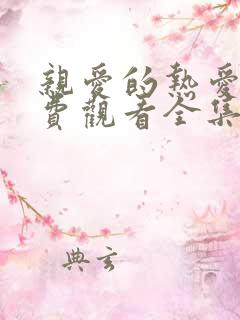 親愛的熱愛
費觀看全集
典玄